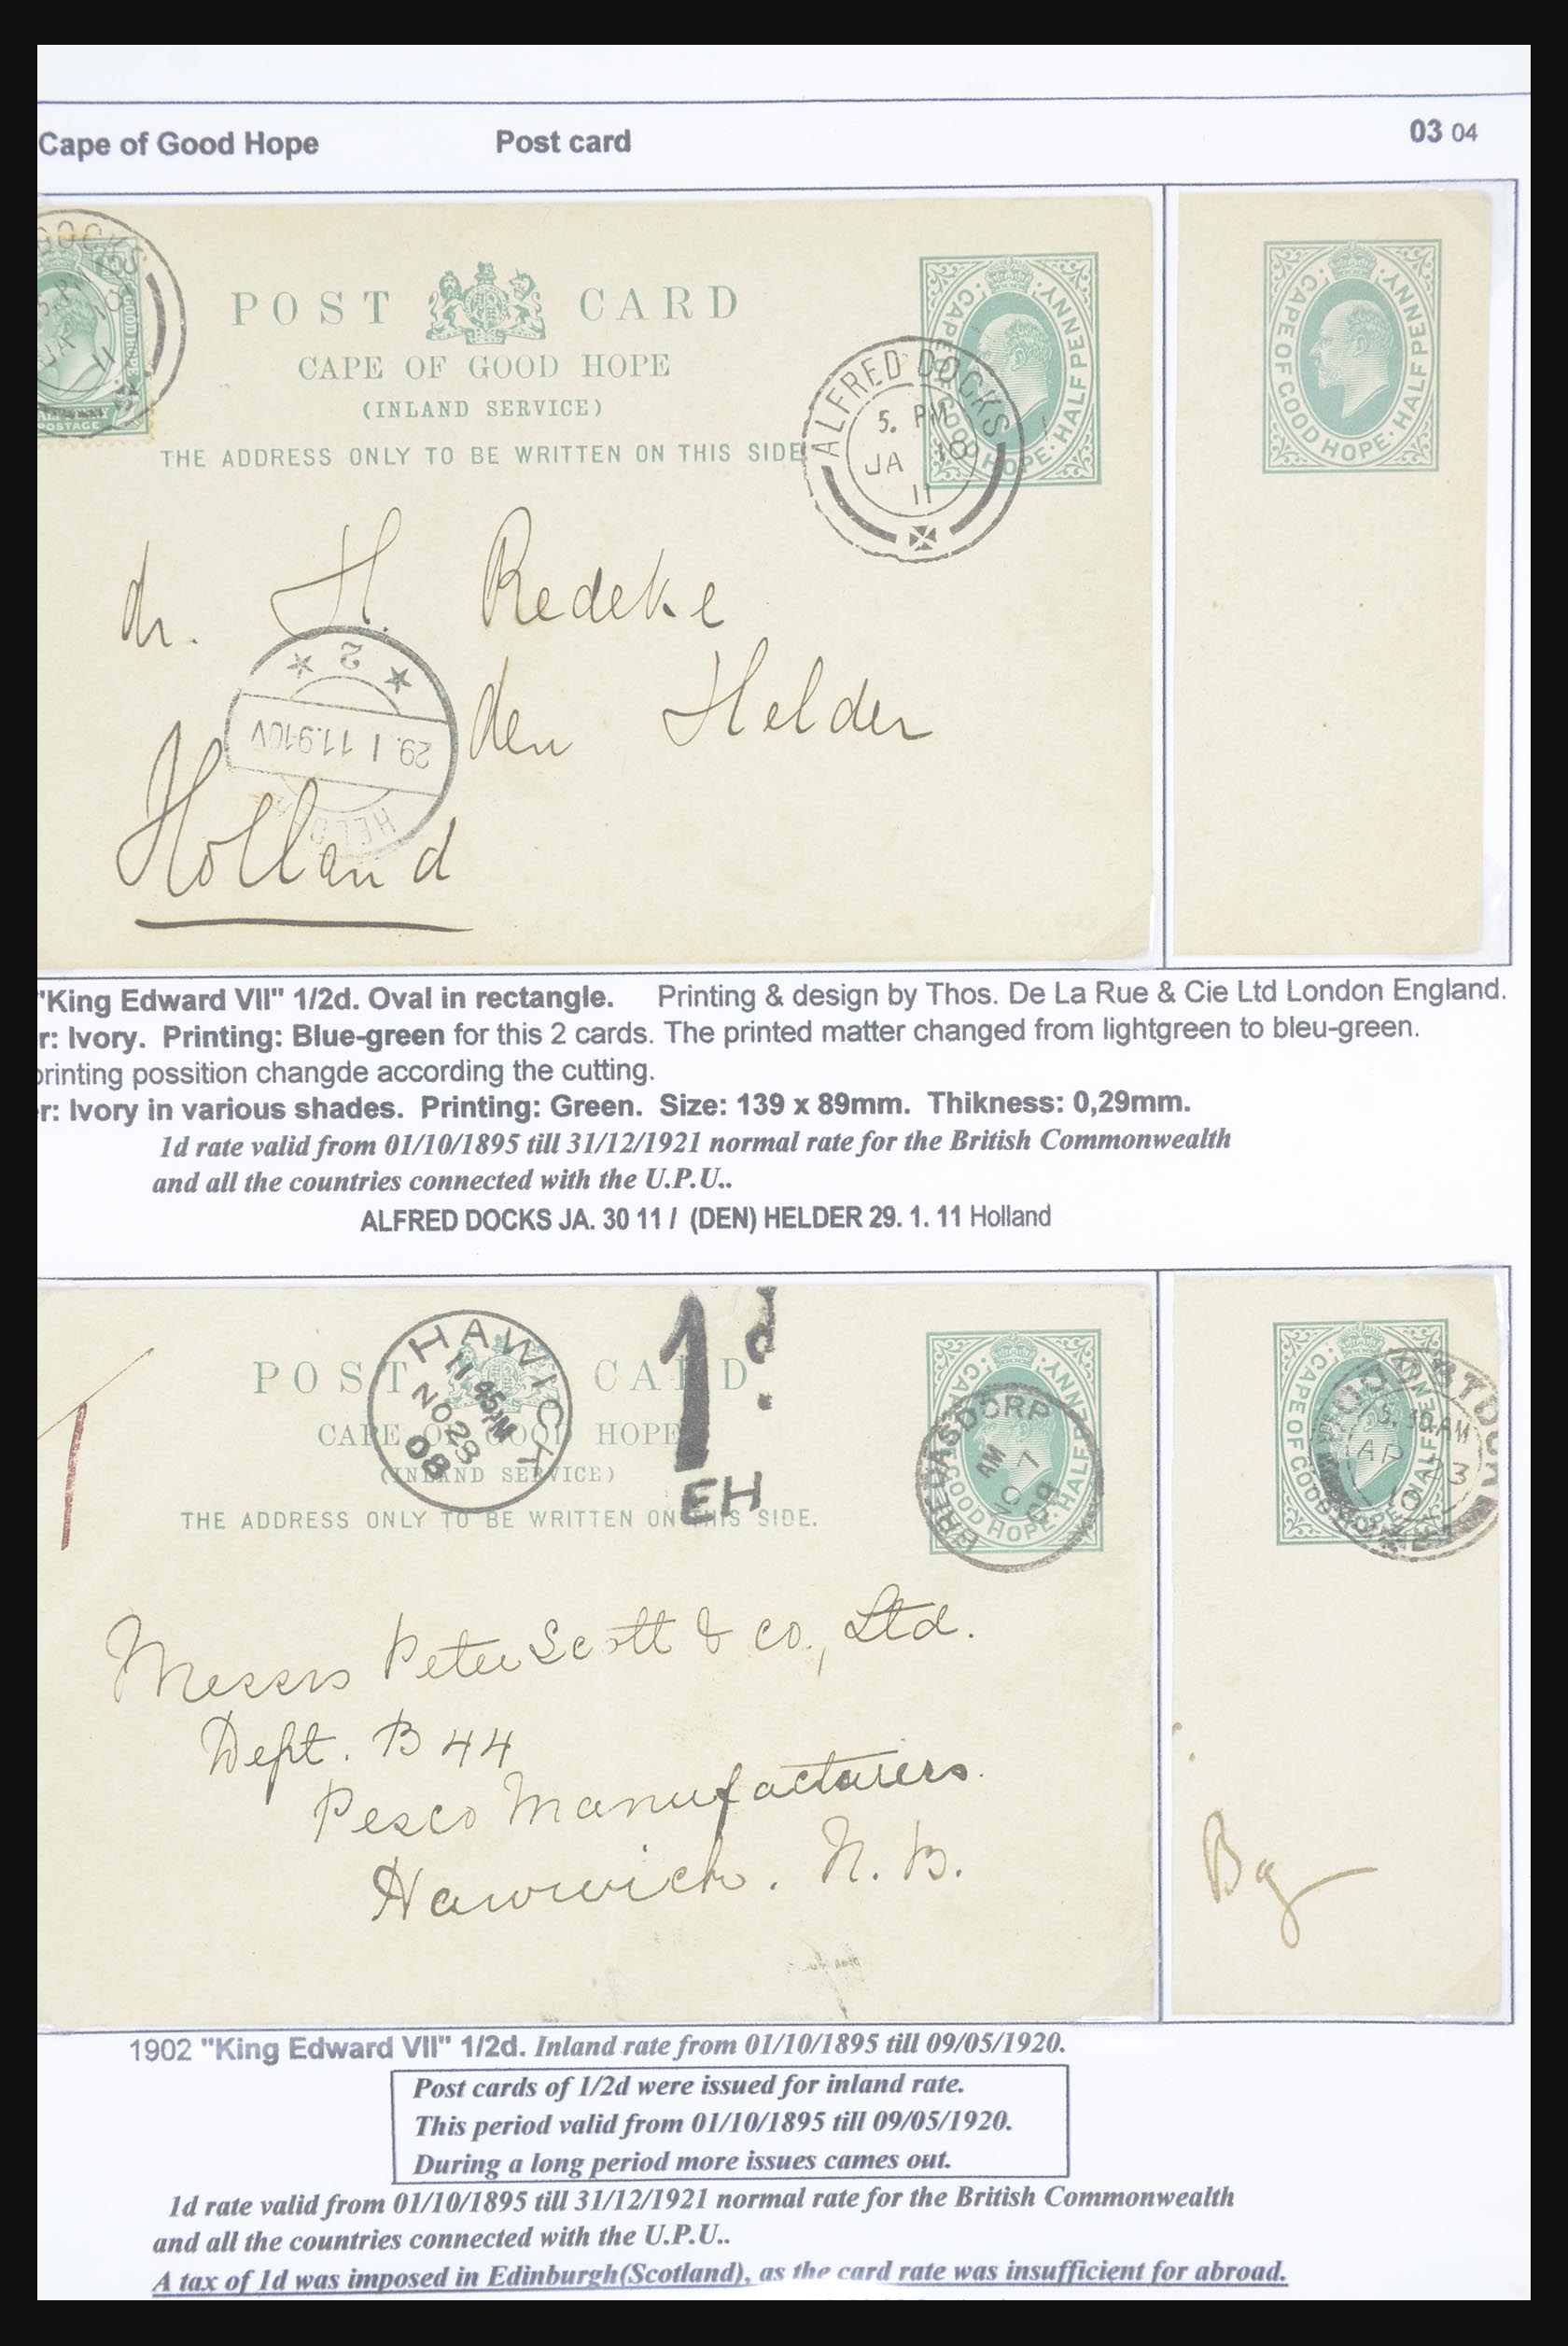 Cape of Good Hope Post card 03 04
DOCKS
JA 18
11
GOOD HOPE
POSTAGE
POST CARD
CAPE OF GOOD HOPE
(INLAND SERVICE)
THE ADDRESS ONLY TO BE WRITTEN ON THIS SIDE.
CAPE OF GOOD HOPE. HALF PENNY.
ALFRED DOCKS
5. PM
JA 18
11
CAPE OF GOOD HOPE. HALF PENNY.
dr. H. Redeke
den Helder
Holland
2
29. 1 11.9-10V
HELDER
"King Edward VII" 1/2d. Oval in rectangle. Printing & design by Thos. De La Rue & Cie Ltd London England.
r: Ivory. Printing: Blue-green for this 2 cards. The printed matter changed from lightgreen to bleu-green.
printing possition changde according the cutting.
er: Ivory in various shades. Printing: Green. Size: 139 x 89mm. Thikness: 0,29mm.
1d rate valid from 01/10/1895 till 31/12/1921 normal rate for the British Commonwealth
and all the countries connected with the U.P.U..
ALFRED DOCKS JA. 30 11 / (DEN) HELDER 29. 1. 11 Holland
POST CARD
CAPE OF GOOD HOPE
(INLAND SERVICE)
THE ADDRESS ONLY TO BE WRITTEN ON THIS SIDE.
HAWICK
11 45PM
NO 28
08
1d.
EH
CAPE OF GOOD HOPE. HALF PENNY.
BREDASDORP
AM 7
CAPE OF GOOD HOPE. HALF PENNY.
5.30AM
AP 23
10
Messrs Peter Scott & Co., Ltd.
Dept. B 44
Pesco Manufacturers.
Hawwich. N. B.
Bg
1902 "King Edward VII" 1/2d. Inland rate from 01/10/1895 till 09/05/1920.
Post cards of 1/2d were issued for inland rate.
This period valid from 01/10/1895 till 09/05/1920.
During a long period more issues cames out.
1d rate valid from 01/10/1895 till 31/12/1921 normal rate for the British Commonwealth
and all the countries connected with the U.P.U..
A tax of 1d was imposed in Edinburgh(Scotland), as the card rate was insufficient for abroad.